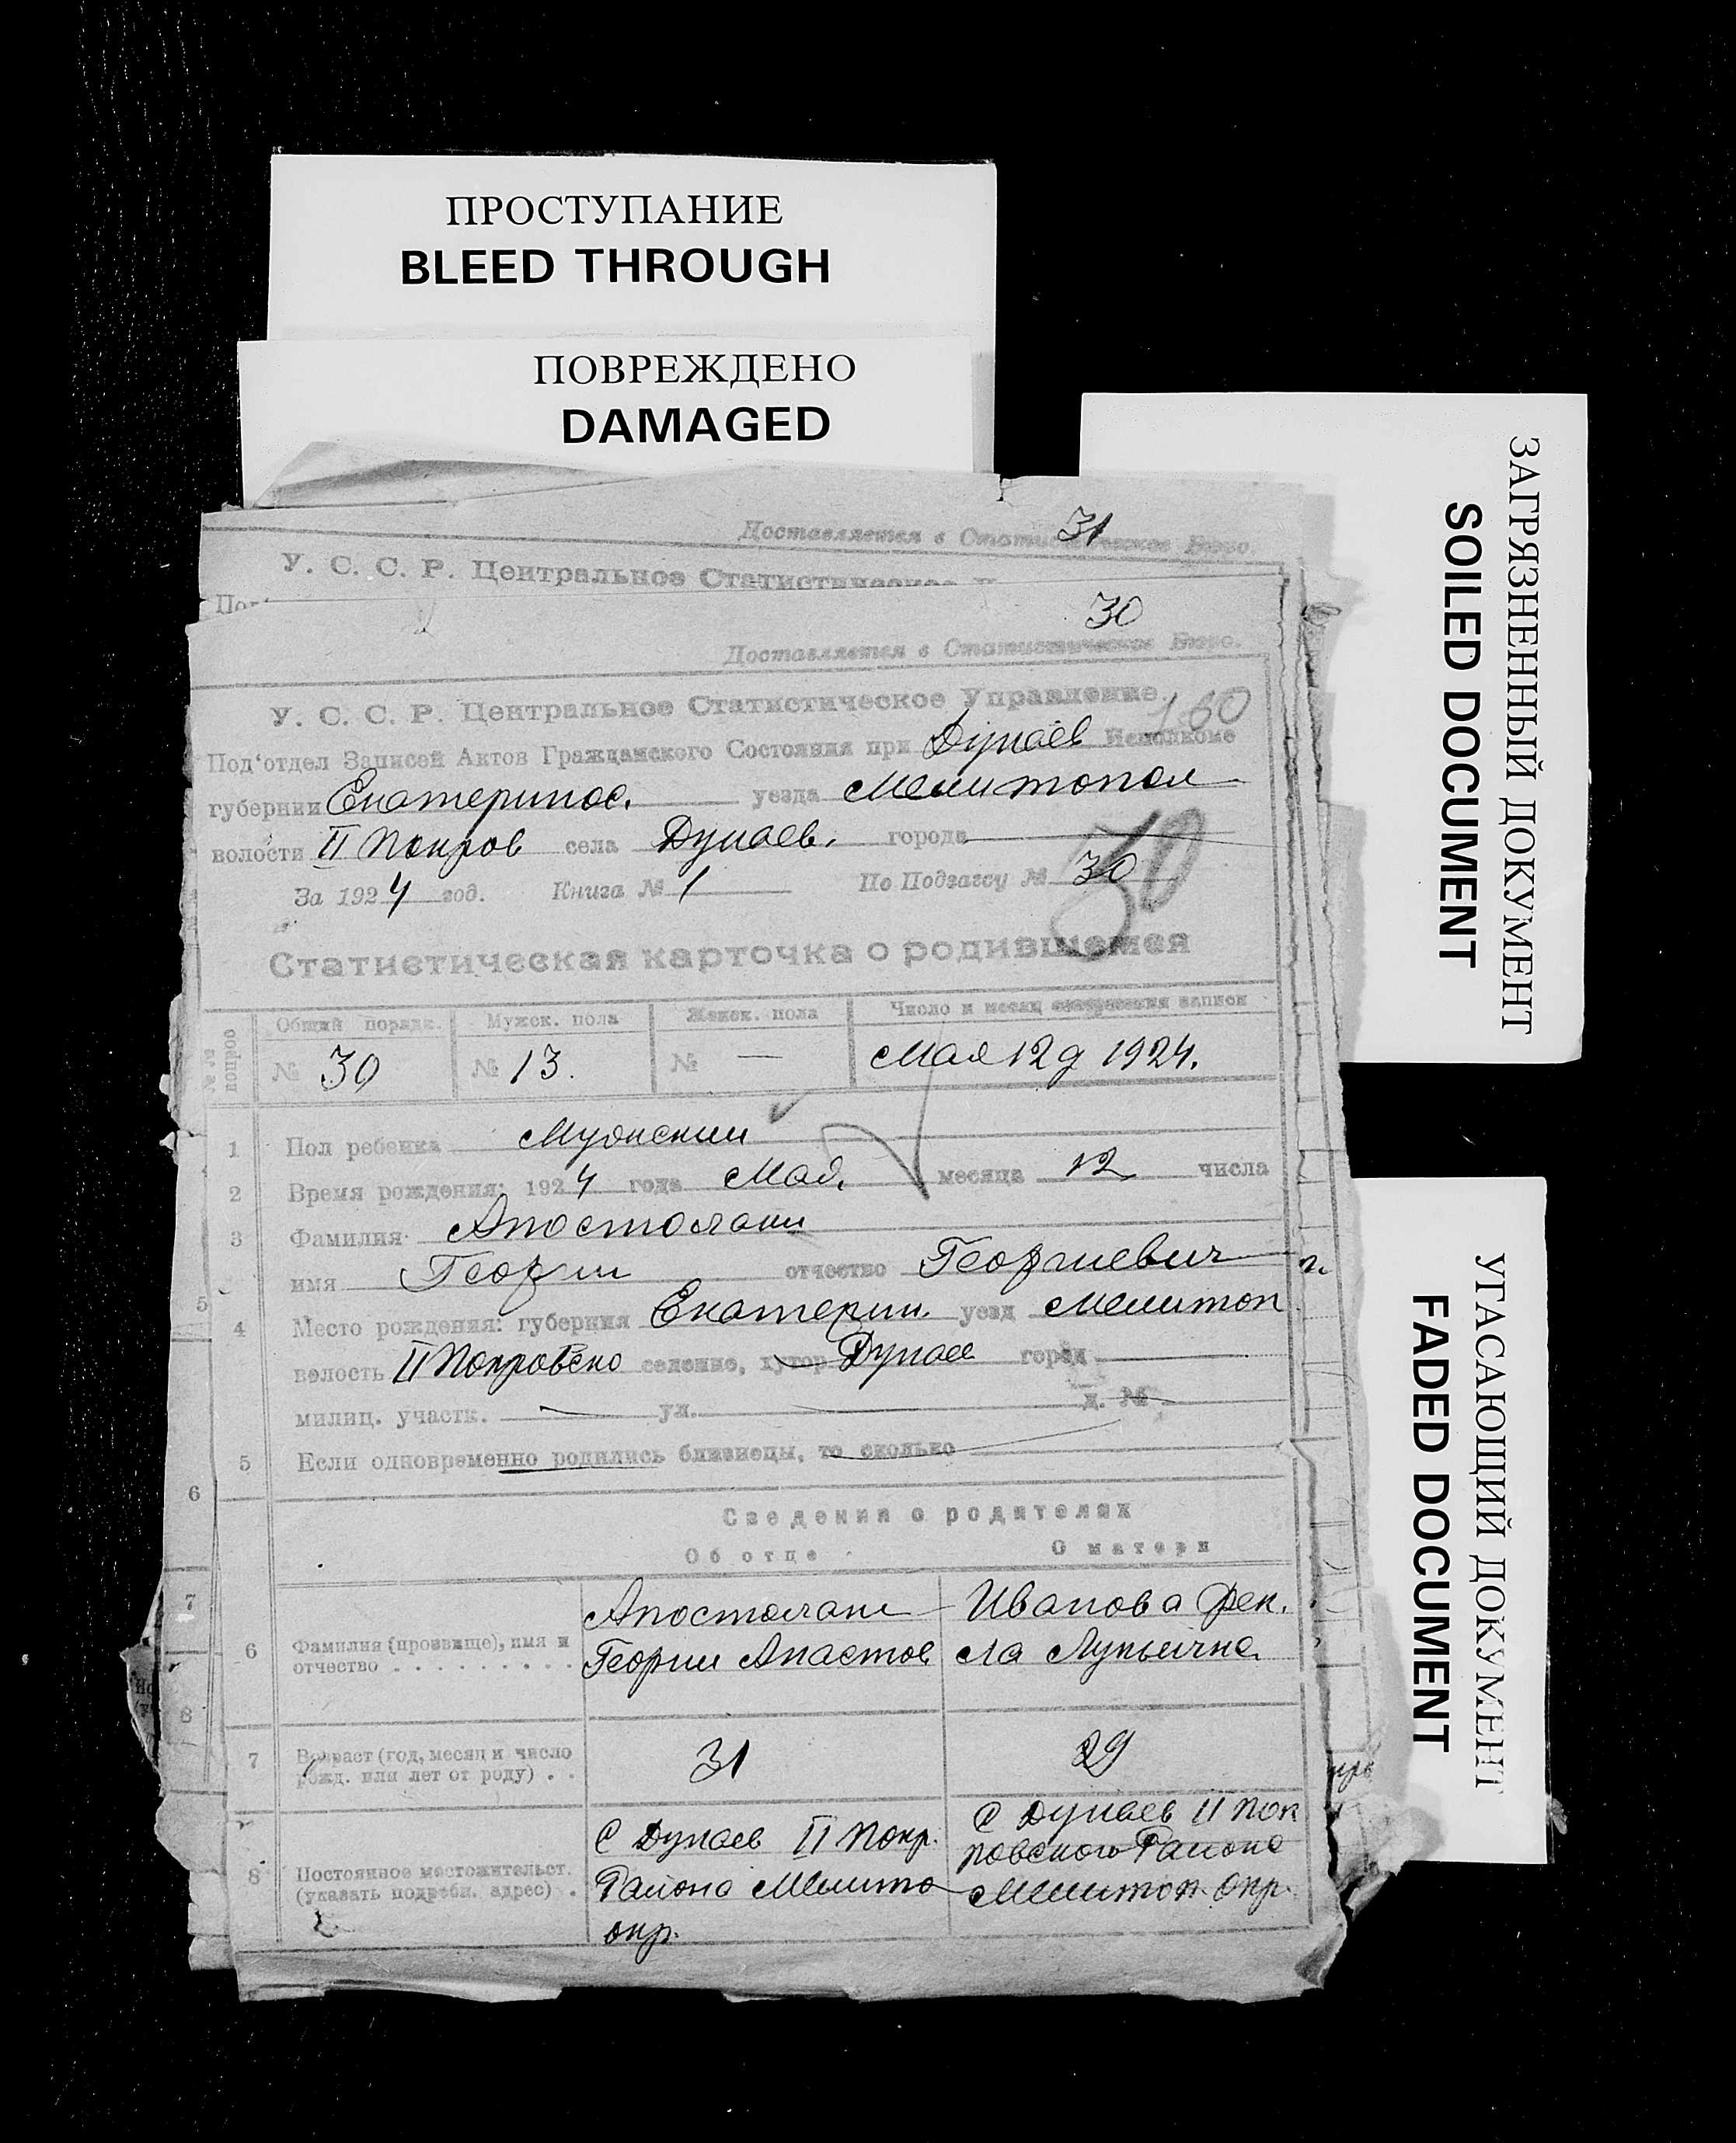 ПРОСТУПАНИЕ
BLEED THROUGH
ПОВРЕЖДЕНО
DAMAGED
ЗАГРЯЗНЕННЫЙ ДОКУМЕНТ
SOILED DOCUMENT
УГАСАЮЩИЙ ДОКУМЕНТ
FADED DOCUMENT
31
Доставляется в Статистическое Бюро.
У. С. С. Р. Центральное Статистическое
30
Доставляется в Статистическое Бюро.
У. С. С. Р. Центральное Статистическое Управление.
160
Под‘отдел Записей Актов Гражданского Состояния при Дунаев Исполкоме
губернии Екатеринос. уезда Мелитопол
волости II Покров села Дунаев. города
30
За 1924 год. Книга № 1 По Подзагсу № 30
Статистическая карточка о родившемся
№№ вопрос
Общий порядк. Мужск. пола Женск. пола Число и месяц совершения записи
№ 30 № 13. № — Мая 12 д 1924.
1 Пол ребенка Мужский
2 Время рождения: 1924 года Мая. месяца 12 числа
3 Фамилия Апостолаки
имя Георги отчество Георгиевич
4 Место рождения: губерния Екатерин. уезд Мелитоп
волость II Покровско селение, хутор Дунаев город
милиц. участк. ул. д. №
5 Если одновременно родились близнецы, то сколько
Сведения о родителях
Об отце О матери
6 Фамилия (прозвище), имя и отчество
Апостолаки
Георги Апастов
Иванова Фек.
ла Лукьична
7 Возраст (год, месяц и число рожд. или лет от роду)
31 29
8 Постоянное местожительст. (указать подробн. адрес)
С Дунаев II Покр.
Района Мелито
окр.
С Дунаев II Пок
ровского Района
Мелитоп. Окр.
5
6
7
8